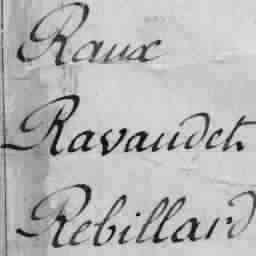 Raux
Ravaudet.
Rebillard